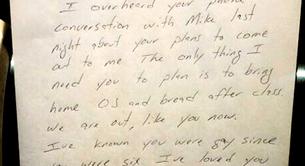 I overheard your phone
conversation with Mike last
night about your plans to come
out to me The only thing I
need you to plan is to bring
home OJ and bread after class.
We are out, like you now.
I've known you were gay since
you were six I've loved you